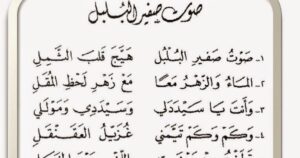 صوت صفير البلبل
١ـ صَوْتُ صَفِيرِ البُلْبُلِ هَيَّجَ قَلْبَ الثَّمِلِ
٢ـ المَاءُ وَالزَّهْرُ مَعًا مَعَ زَهْرِ لَحْظِ المُقَلِ
٣ـ وَأَنْتَ يَا سَيِّدَلِي وَسَيِّدِي وَمَوْلَى لِي
٤ـ وَكَمْ وَكَمْ تَيَّمَنِي غُزَيِّلٌ عَقَنْقَلِ